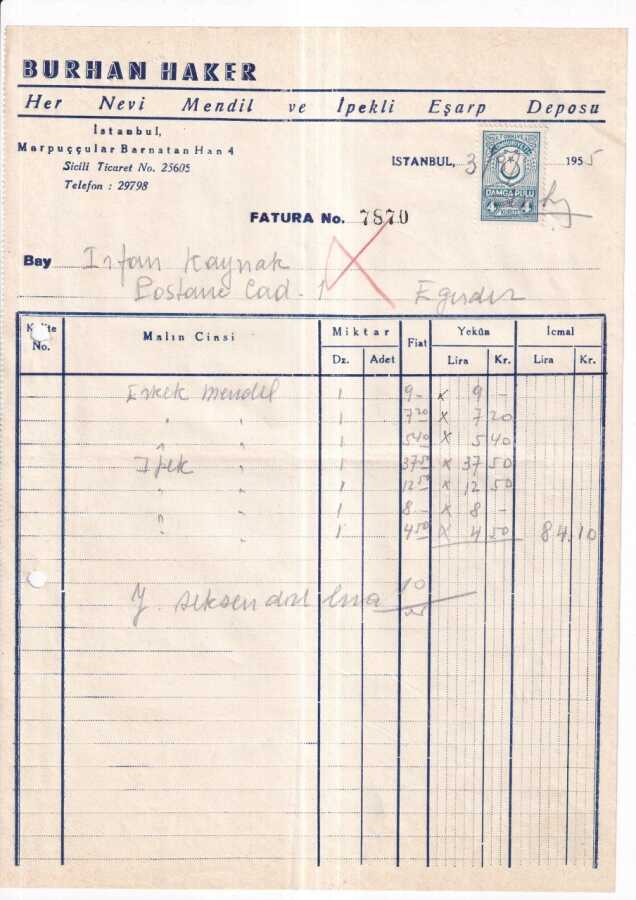 BURHAN HAKER
Her Nevi Mendil ve İpekli Eşarp Deposu
İstanbul,
Marpuççular Barnatan Han 4
Sicili Ticaret No. 25605
Telefon : 29798
İSTANBUL, 3 1955
TÜRKİYE CUMHURİYETİ
DAMGA PULU
4 KURUŞ 4
FATURA No. 7870
Bay Irfan Kaynak
Postane Cad. 1 Egirdir
No. Malın Cinsi Miktar Fiat Yekûn İcmal
Dz. Adet Lira Kr. Lira Kr.
Erkek mendil 1 9 - x 9 -
" " 1 7 20 x 7 20
" 1 5 40 x 5 40
İpek " 1 37 50 x 37 50
" " 1 12 50 x 12 50
" " 1 8 - x 8 -
" " 1 4 50 x 4 50 84.10
Y. seksendört lira 10